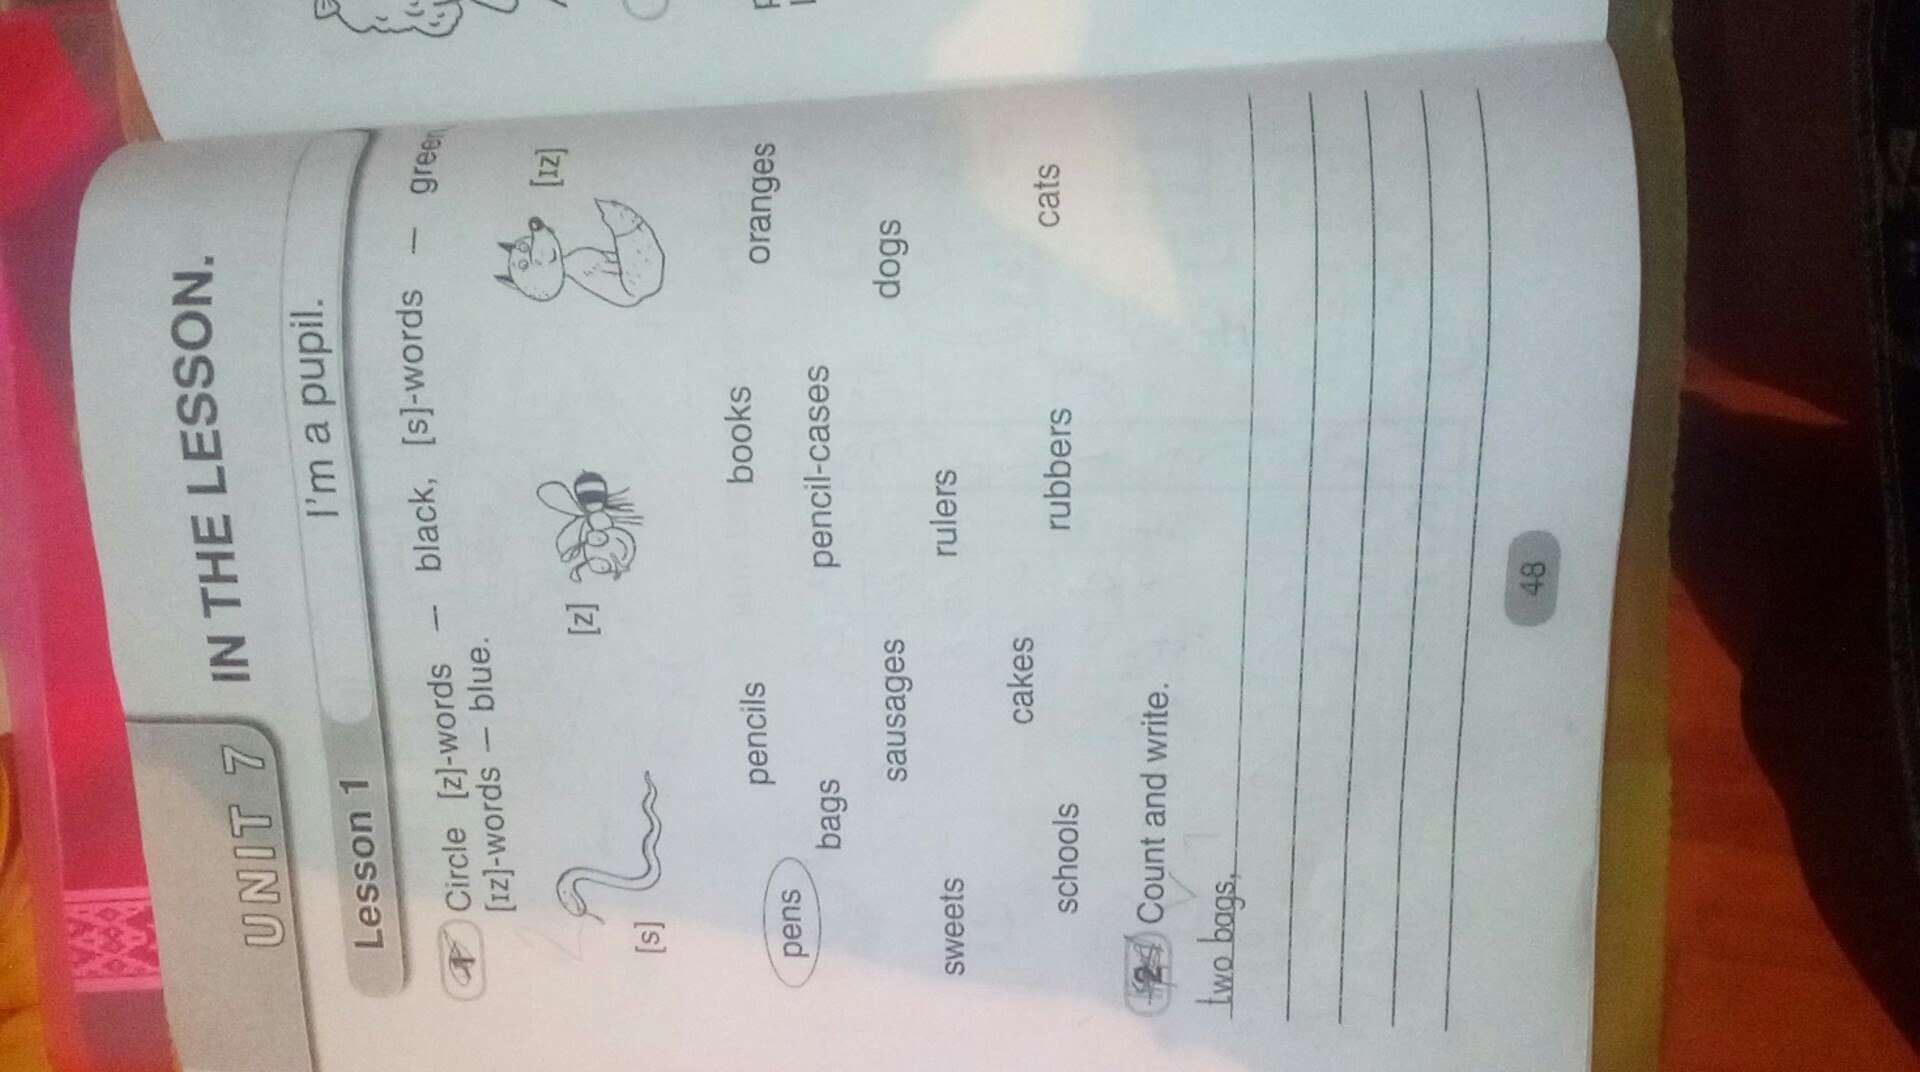 UNIT 7
IN THE LESSON.
Lesson 1
I'm a pupil.
1 Circle [z]-words — black, [s]-words — green,
[ɪz]-words — blue.
[s]
[z]
[ɪz]
pens
pencils
books
oranges
bags
pencil-cases
sausages
dogs
sweets
rulers
cakes
cats
schools
rubbers
2 Count and write.
two bags,
48